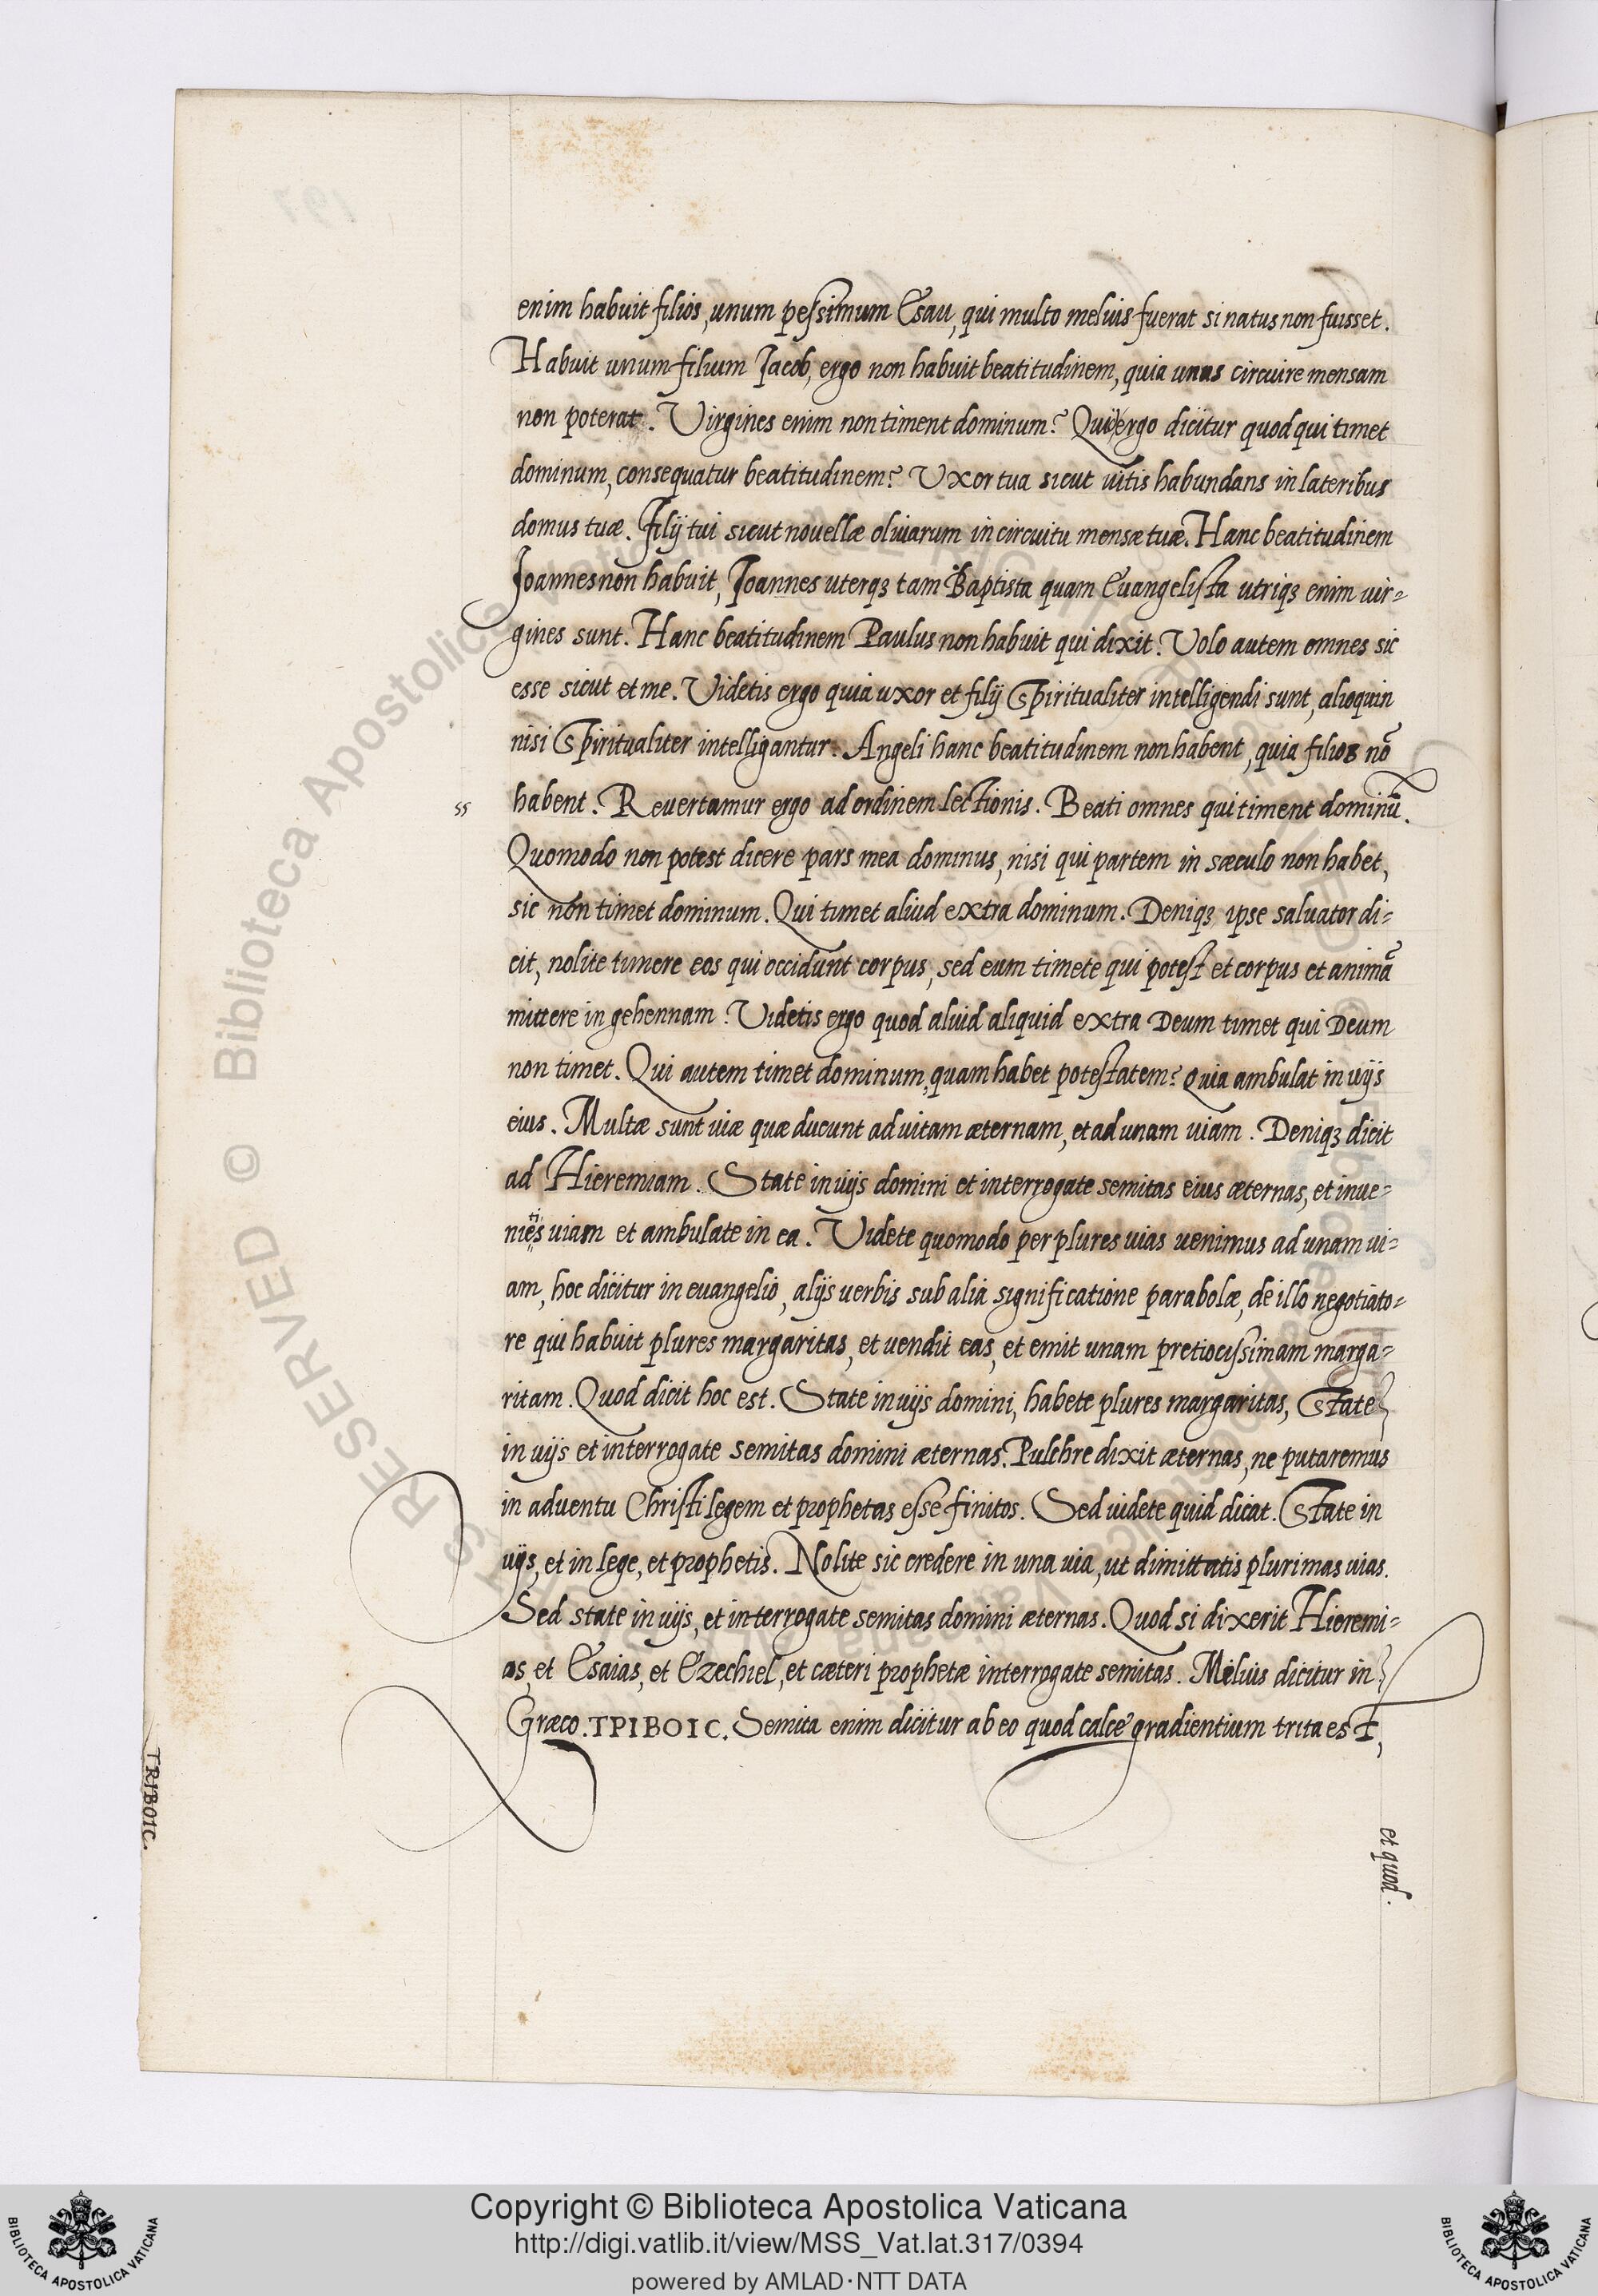 enim habuit filios, unum pessimum Esau, qui multo melius fuerat si natus non fuisset.
Habuit unum filium Jacob, ergo non habuit beatitudinem, quia unus circuire mensam
non poterat. Virgines enim non timent dominum? Qui ergo dicitur quod qui timet
dominum, consequatur beatitudinem? Uxor tua sicut vitis habundans in lateribus
domus tuæ. Filij tui sicut novellæ olivarum in circuitu mensæ tuæ. Hanc beatitudinem
Joannes non habuit, Joannes uterqꝫ tam Baptista quam Euangelista utriqꝫ enim vir=
gines sunt. Hanc beatitudinem Paulus non habuit qui dixit. Volo autem omnes sic
esse sicut et me. Videtis ergo quia uxor et filij Spiritualiter intelligendi sunt, alioquin
nisi Spiritualiter intelligantur. Angeli hanc beatitudinem non habent, quia filios nō
ss habent. Revertamur ergo ad ordinem lectionis. Beati omnes qui timent dominū.
Quomodo non potest dicere pars mea dominus, nisi qui partem in sæculo non habet,
sic non timet dominum. Qui timet aliud extra dominum. Deniqꝫ ipse saluator di=
cit, nolite timere eos qui occidunt corpus, sed eum timete qui potest et corpus et animā
mittere in gehennam. Videtis ergo quod aliud aliquid extra Deum timet qui Deum
non timet. Qui autem timet dominum, quam habet potestatem? Quia ambulat in vijs
eius. Multæ sunt viæ quæ ducunt ad vitam æternam, et ad unam viam. Deniqꝫ dicit
ad Hieremiam. State in vijs domini et interrogate semitas eius æternas, et inue=
ti
nies viam et ambulate in ea. Videte quomodo per plures vias venimus ad unam vi=
am, hoc dicitur in euangelio, alijs verbis sub alia significatione parabolæ, de illo negotiato=
re qui habuit plures margaritas, et vendit eas, et emit unam pretiocissimam marga=
ritam. Quod dicit hoc est. State in vijs domini, habete plures margaritas, State
in vijs et interrogate semitas domini æternas. Pulchre dixit æternas, ne putaremus
in adventu Christi legem et prophetas esse finitos. Sed videte quid dicat. State in
vijs, et in lege, et prophetis. Nolite sic credere in una via, ut dimittatis plurimas vias.
Sed state in vijs, et interrogate semitas domini æternas. Quod si dixerit Hieremi=
as, et Esaias, et Ezechiel, et cæteri prophetæ interrogate semitas. Melius dicitur in
Græco. TPIBOIC. Semita enim dicitur ab eo quod calce gradientium trita est,
TRIBOIC.
et quod.
RESERVED © Biblioteca Apostolica
Copyright © Biblioteca Apostolica Vaticana
http://digi.vatlib.it/view/MSS_Vat.lat.317/0394
powered by AMLAD·NTT DATA
BIBLIOTECA APOSTOLICA VATICANA
BIBLIOTECA APOSTOLICA VATICANA